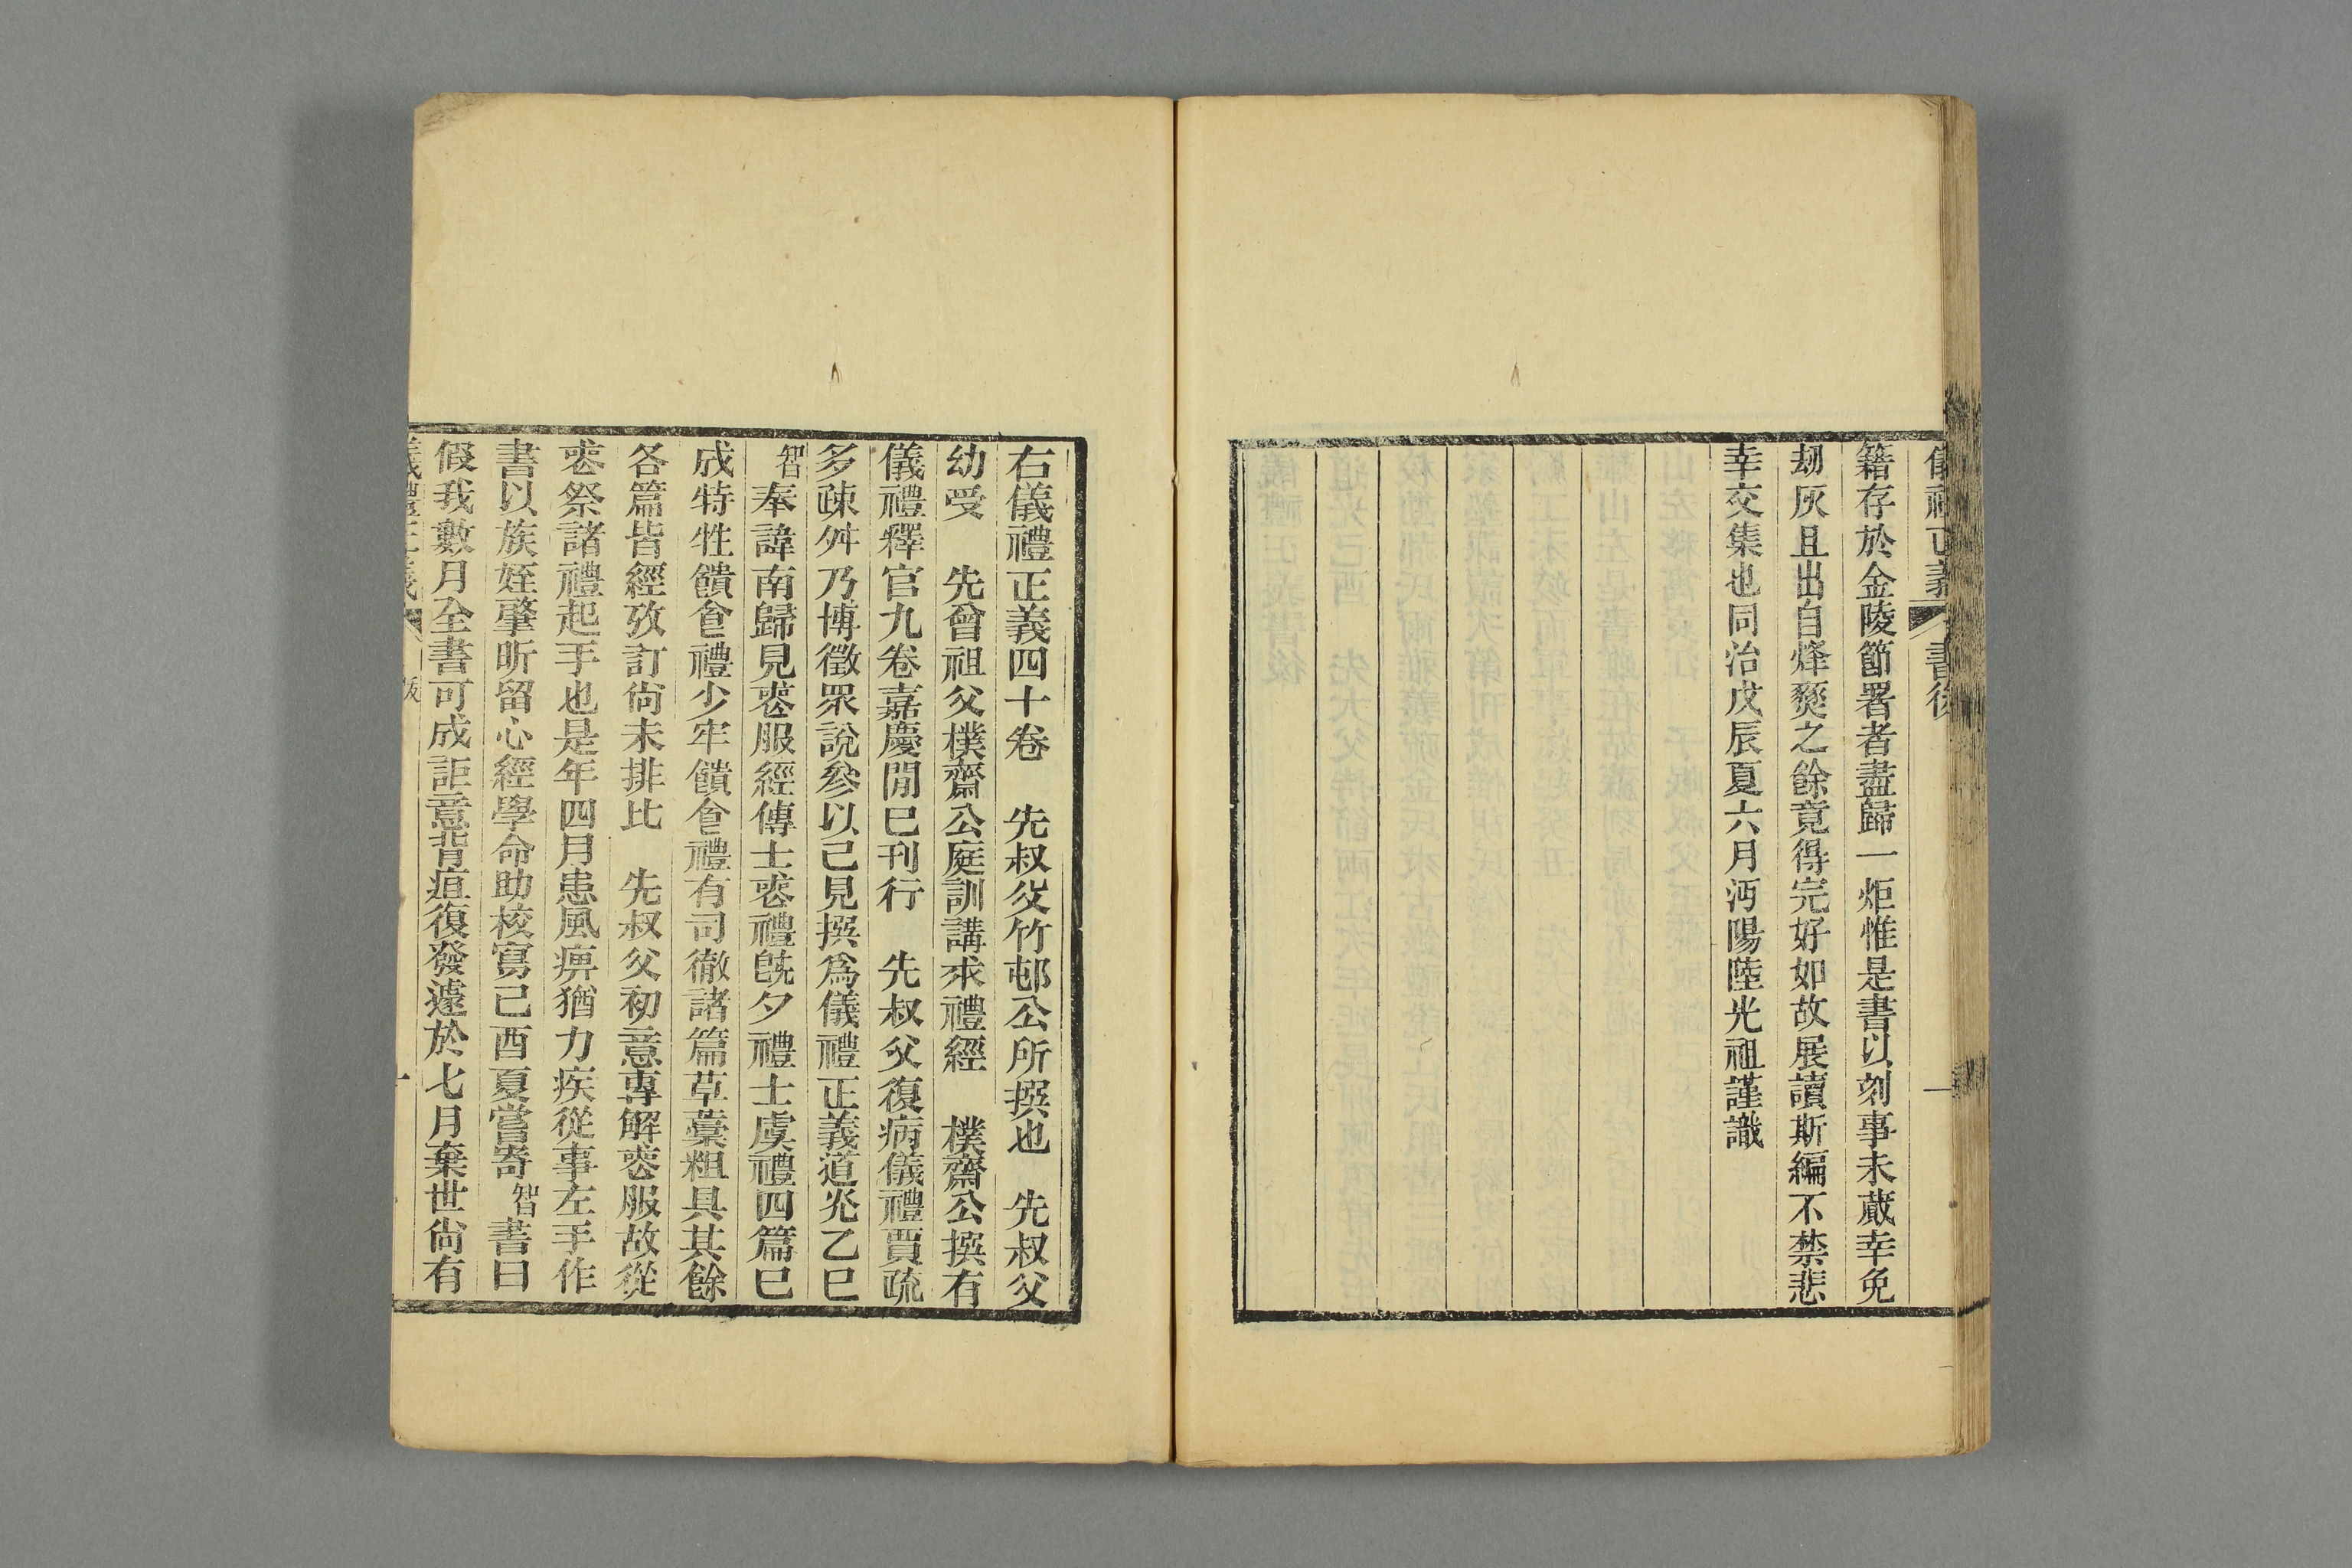 儀禮正義 書後 一
籍存於金陵節署者盡歸一炬惟是書以刻事未蕆幸免
劫灰且出自烽燹之餘竟得完好如故展讀斯編不禁悲
幸交集也同治戊辰夏六月沔陽陸光祖謹識
右儀禮正義四十卷 先叔父竹邨公所撰也 先叔父
幼受 先曾祖父樸齋公庭訓講求禮經 樸齋公撰有
儀禮釋官九卷嘉慶閒已刊行 先叔父復病儀禮賈疏
多疎舛乃博徵眾說參以己見撰爲儀禮正義道光乙巳
智奉諱南歸見喪服經傳士喪禮旣夕禮士虞禮四篇已
成特牲饋食禮少牢饋食禮有司徹諸篇草藁粗具其餘
各篇皆經攷訂尙未排比 先叔父初意專解喪服故從
喪祭諸禮起手也是年四月患風痹猶力疾從事左手作
書以族姪肇昕留心經學命助校寫己酉夏嘗寄智書曰
假我數月全書可成詎意背疽復發遽於七月棄世尙有
儀禮正義 一